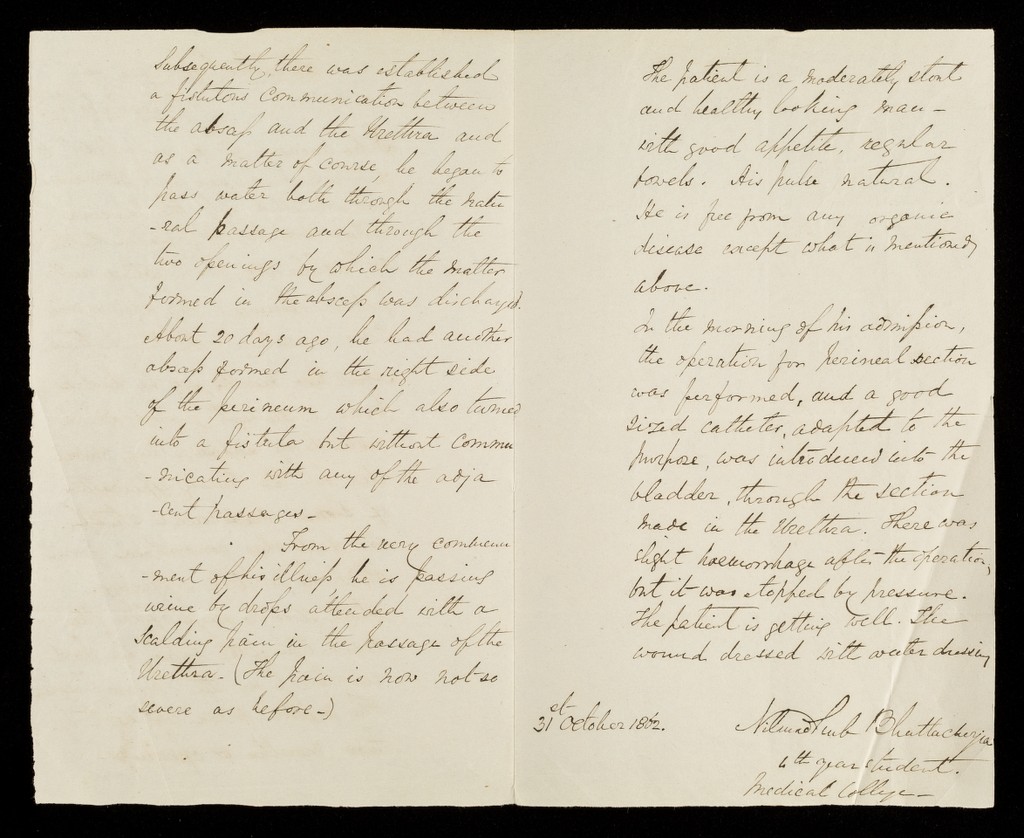 Subsequently, there was established
a fistulous communication between
the absess and the Urethra and
as a matter of course, he began to
pass water both through the natu
-ral passage and through the
two openings by which the matter
formed in the abscess was discharged.
About 20 days ago, he had another
absess formed in the right side
of the perineum which also turned
into a fistula but without commu
-nicating with any of the adja
-cent passages-
From the very commence
-ment of his illness he is passing
urine by drops attended with a
scalding pain in the passage of the
Urethra. (The pain is now not so
severe as before-)
The patient is a moderately stout
and healthy looking man-
with good appetite, regular
bowels. His pulse natural.
He is free from any organic
disease except what is mentioned
above.
In the morning of his admission,
the operation for perineal section
was performed, and a good
sized catheter, adapted to the
purpose, was introduced into the
bladder, through the section
made in the Urethra. There was
slight haemorrhage after the operation,
but it was stopped by pressure.
The patient is getting well. The
wound dressed with water dressing
31st October 1862.
Bhuttacherjea
4th year student.
Medical College-